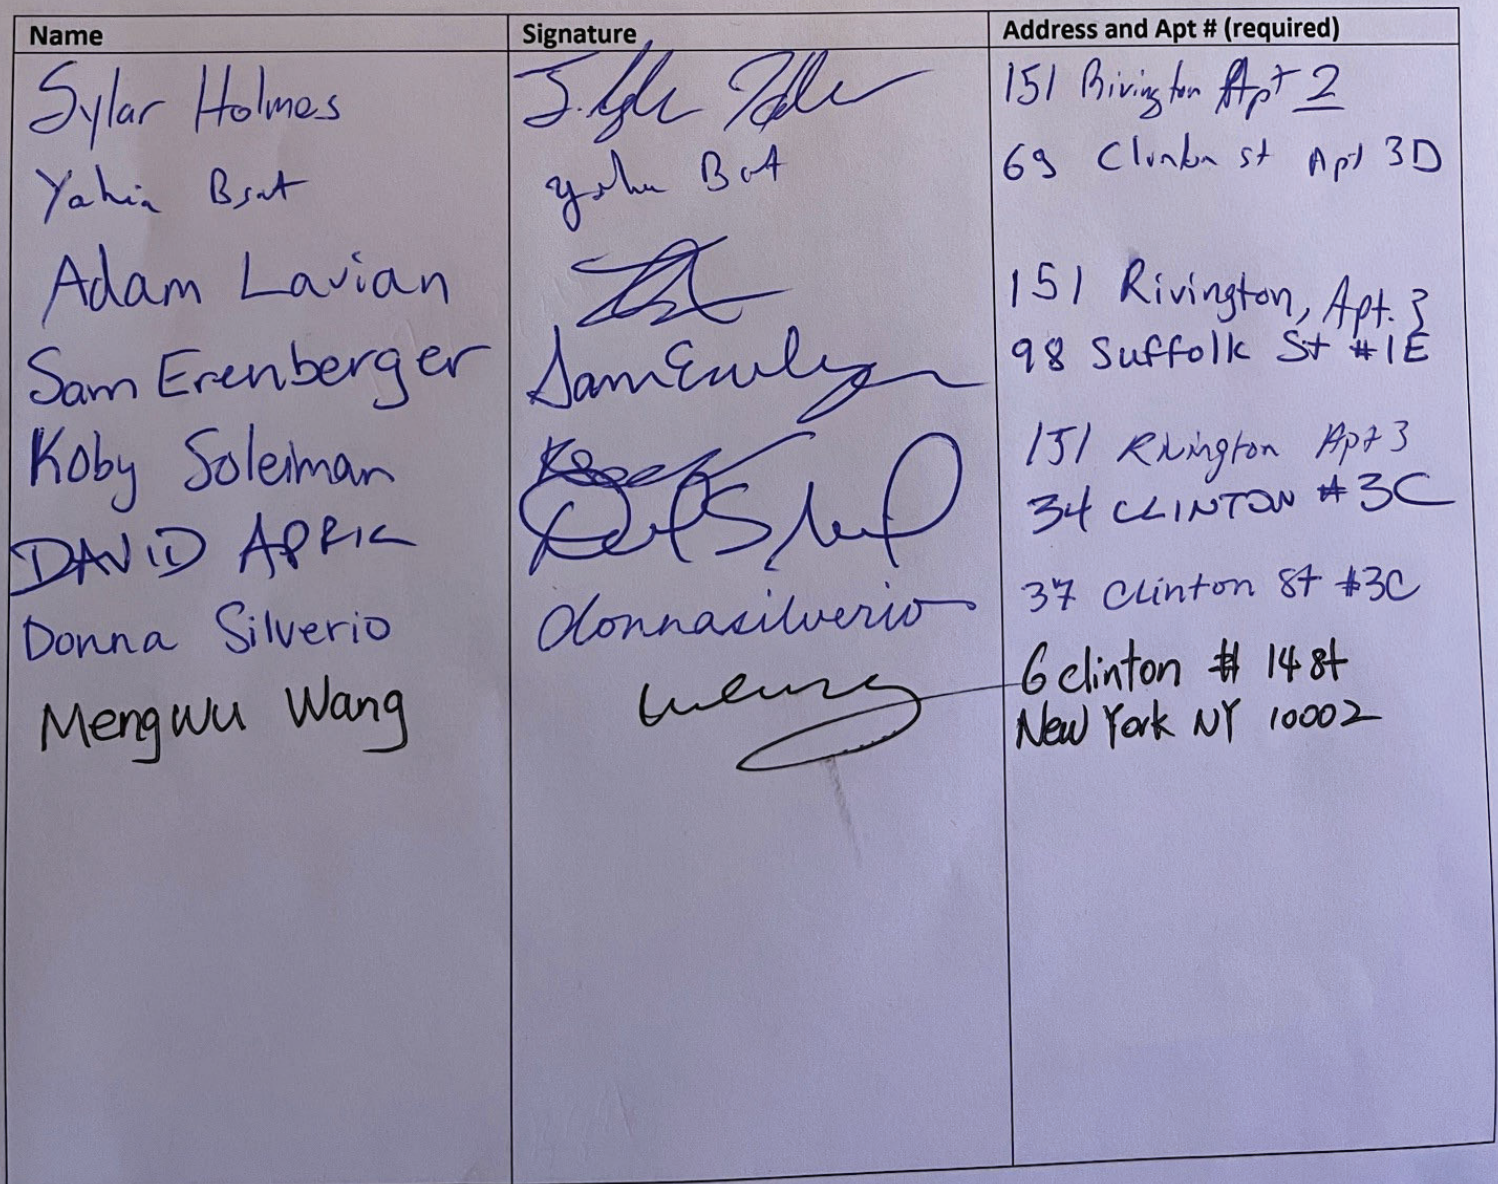 Name Signature Address and Apt # (required)
Sylar Holmes 151 Rivington Apt 2
Yahia Bsat 69 Clinton st Apt 3D
Adam Lavian 151 Rivington, Apt. 3
Sam Erenberger 98 Suffolk St #1E
Koby Soleiman 151 Rivington Apt 3
DAVID 34 CLINTON #3C
Donna Silverio donnasilverio 37 Clinton St #3C
Mengwu Wang 6 clinton # 14 st
New York NY 10002